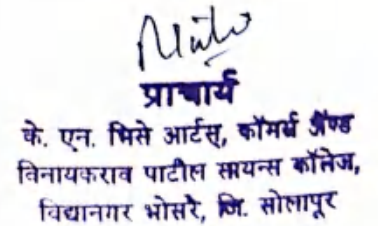 प्राचार्य
के. एन. भिसे आर्टस्, कॉमर्स अँण्ड
विनायकराव पाटील सायन्स कॉलेज,
विद्यानगर भोसरे, जि. सोलापूर